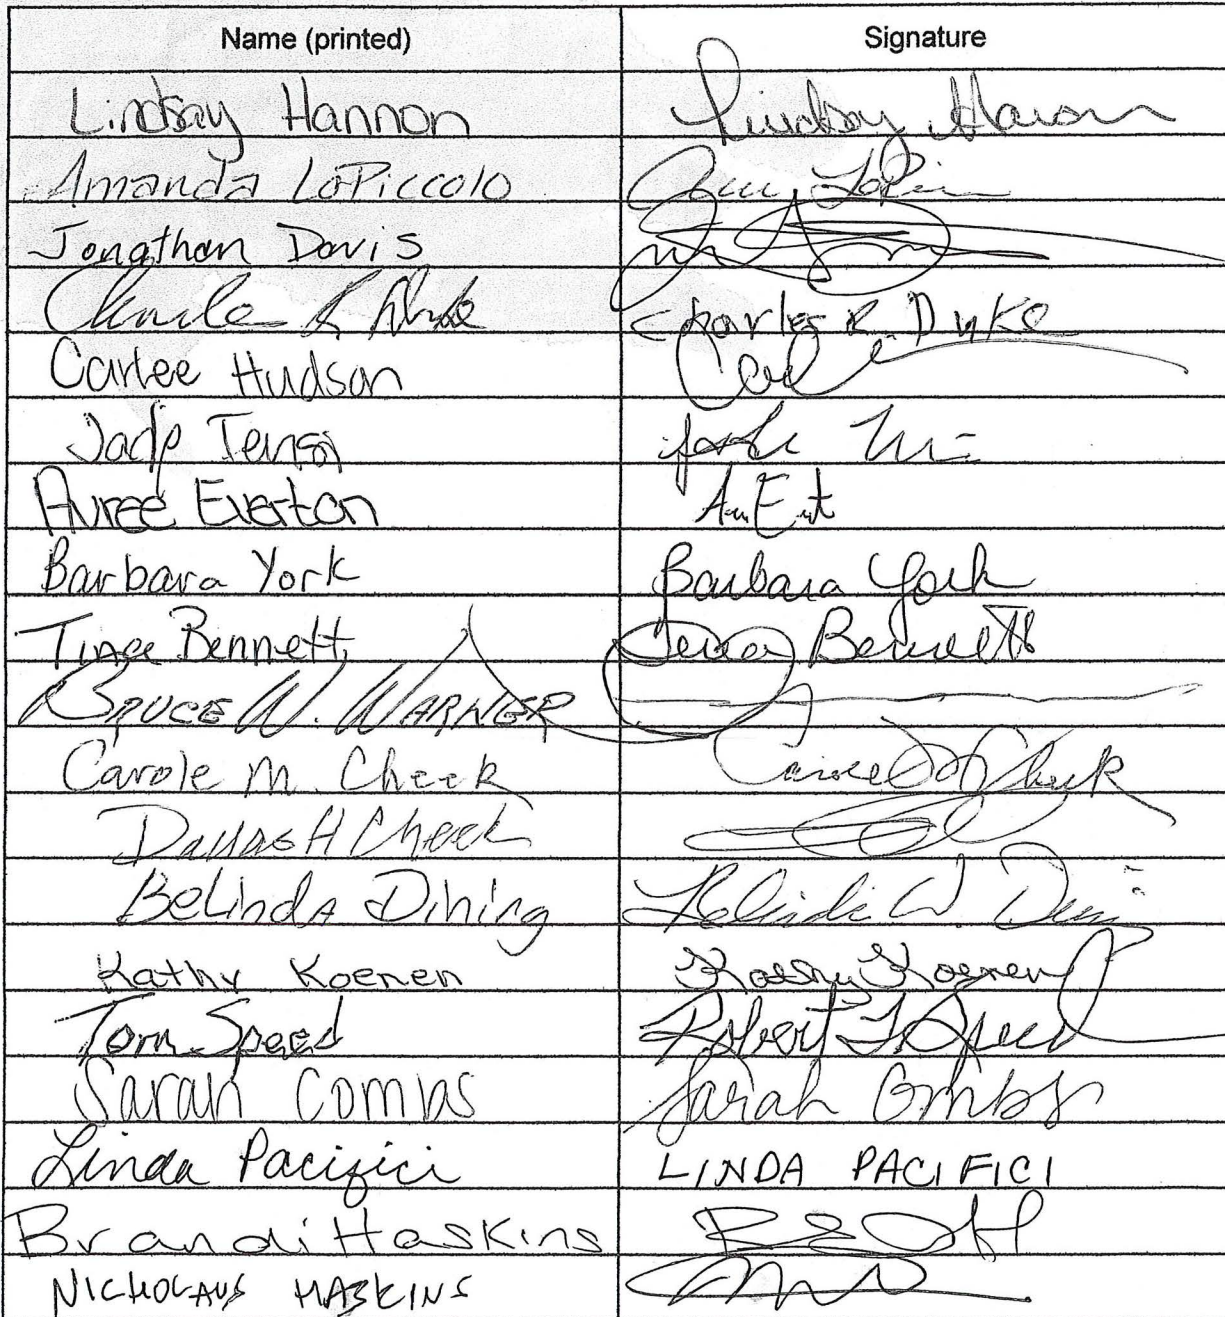 Name (printed) Signature
Lindsay Hannon Lindsay Hannon
Amanda LoPiccolo
Jonathan Davis
Charles R. Duke
Carlee Hudson
Jade
Auree Everton
Barbara York Barbara York
Tina Bennett Tina Bennett
BRUCE W. WARNER
Carole M. Cheek Carole M Cheek
Dallas H Cheek
BeLindA Dining Belinda W.
Kathy Koenen Kathy Koenen
Tom Speed Robert T Speed
Sarah Combs Sarah Combs
Linda Pacifici LINDA PACIFICI
Brandi Haskins
NICHOLAUS HASKINS